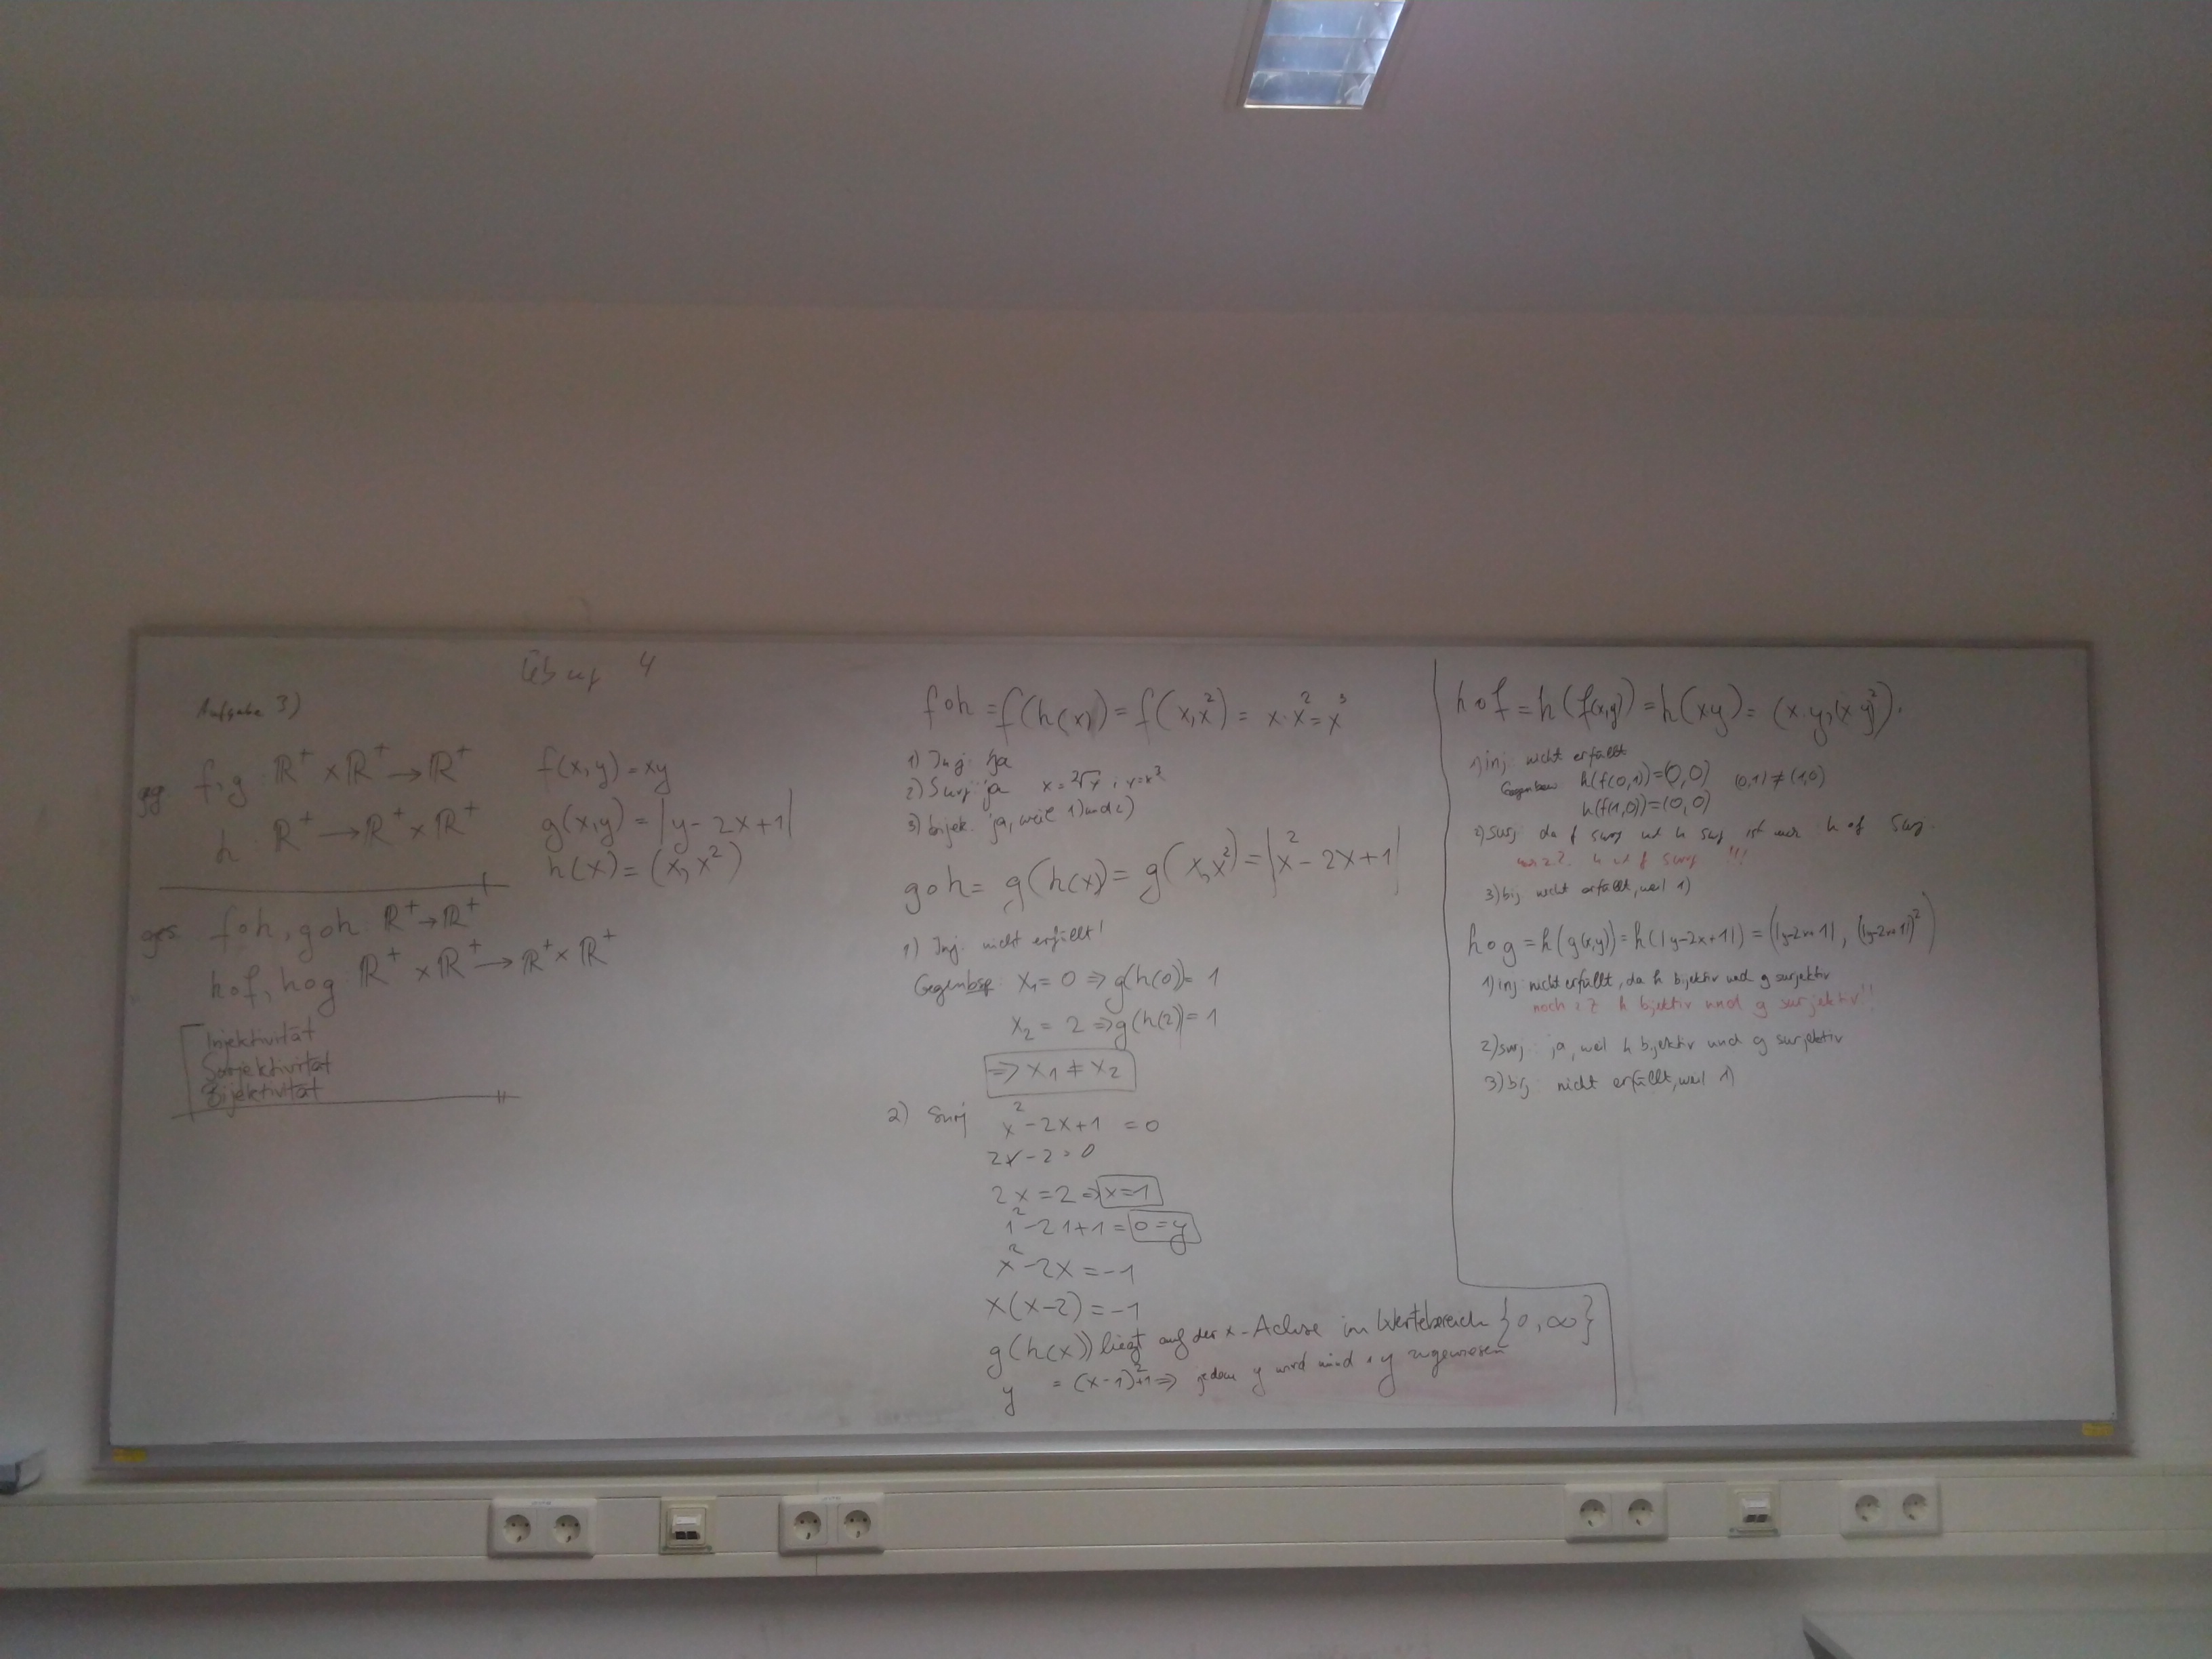 Übung 4
Aufgabe 3)
gg f,g: ℝ⁺ × ℝ⁺ → ℝ⁺ f(x,y) = xy
h: ℝ⁺ → ℝ⁺ × ℝ⁺ g(x,y) = |y - 2x + 1|
h(x) = (x, x²)
ges foh, goh ℝ⁺ → ℝ⁺
hof, hog: ℝ⁺ × ℝ⁺ → ℝ⁺ × ℝ⁺
Injektivität
Surjektivität
Bijektivität
foh = f(h(x)) = f(x, x²) = x · x² = x³
1) Inj. ja
2) Surj ja
3) bijek. ja, weil 1) und 2)
goh = g(h(x)) = g(x, x²) = |x² - 2x + 1|
1) Inj. nicht erfüllt!
Gegenbsp. x₁ = 0 ⇒ g(h(0)) = 1
x₂ = 2 ⇒ g(h(2)) = 1
⇒ x₁ ≠ x₂
2) Surj x² - 2x + 1 = 0
2x - 2 = 0
2x = 2 ⇒ x = 1
1² - 2·1 + 1 = 0 = y
x² - 2x = -1
x(x-2) = -1
g(h(x)) liegt auf der x-Achse im Wertebereich {0, ∞}
y = (x-1)²+1 ⇒ jedem y wird mind 1 y zugewiesen
hof = h(f(x,y)) = h(xy) = (x·y, (x·y)²).
1) inj. nicht erfüllt
Gegenbew h(f(0,1)) = (0,0) (0,1) ≠ (1,0)
h(f(1,0)) = (0,0)
2) Surj da f surj und h surj ist auch h of surj.
h und f surj !!!
3) bij nicht erfüllt, weil 1)
hog = h(g(x,y)) = h(|y-2x+1|) = (|y-2x+1|, (|y-2x+1|)²)
1) inj. nicht erfüllt, da h bijektiv und g surjektiv
noch zZ h bjektiv und g surjektiv!!
2) surj ja, weil h bijektiv und g surjektiv
3) bij nicht erfüllt, weil 1)